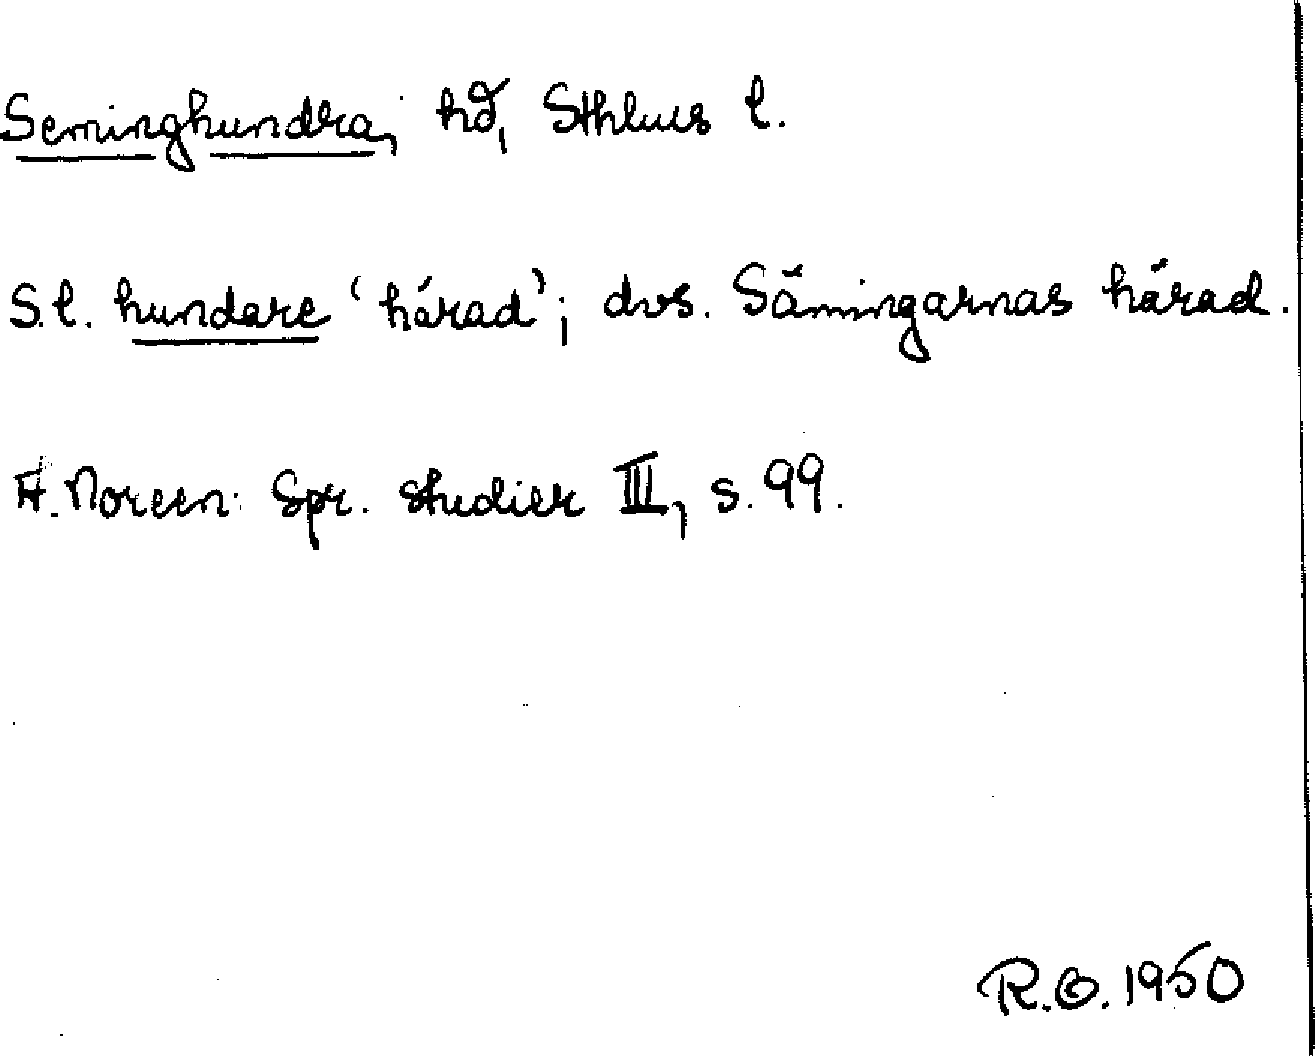 Seminghundra, hd, Sthlms l.
S.l. hundare 'härad'; dvs. Sämingarnas härad.
A. Noreen: Spr. studier III, s. 99.
R.O. 1950